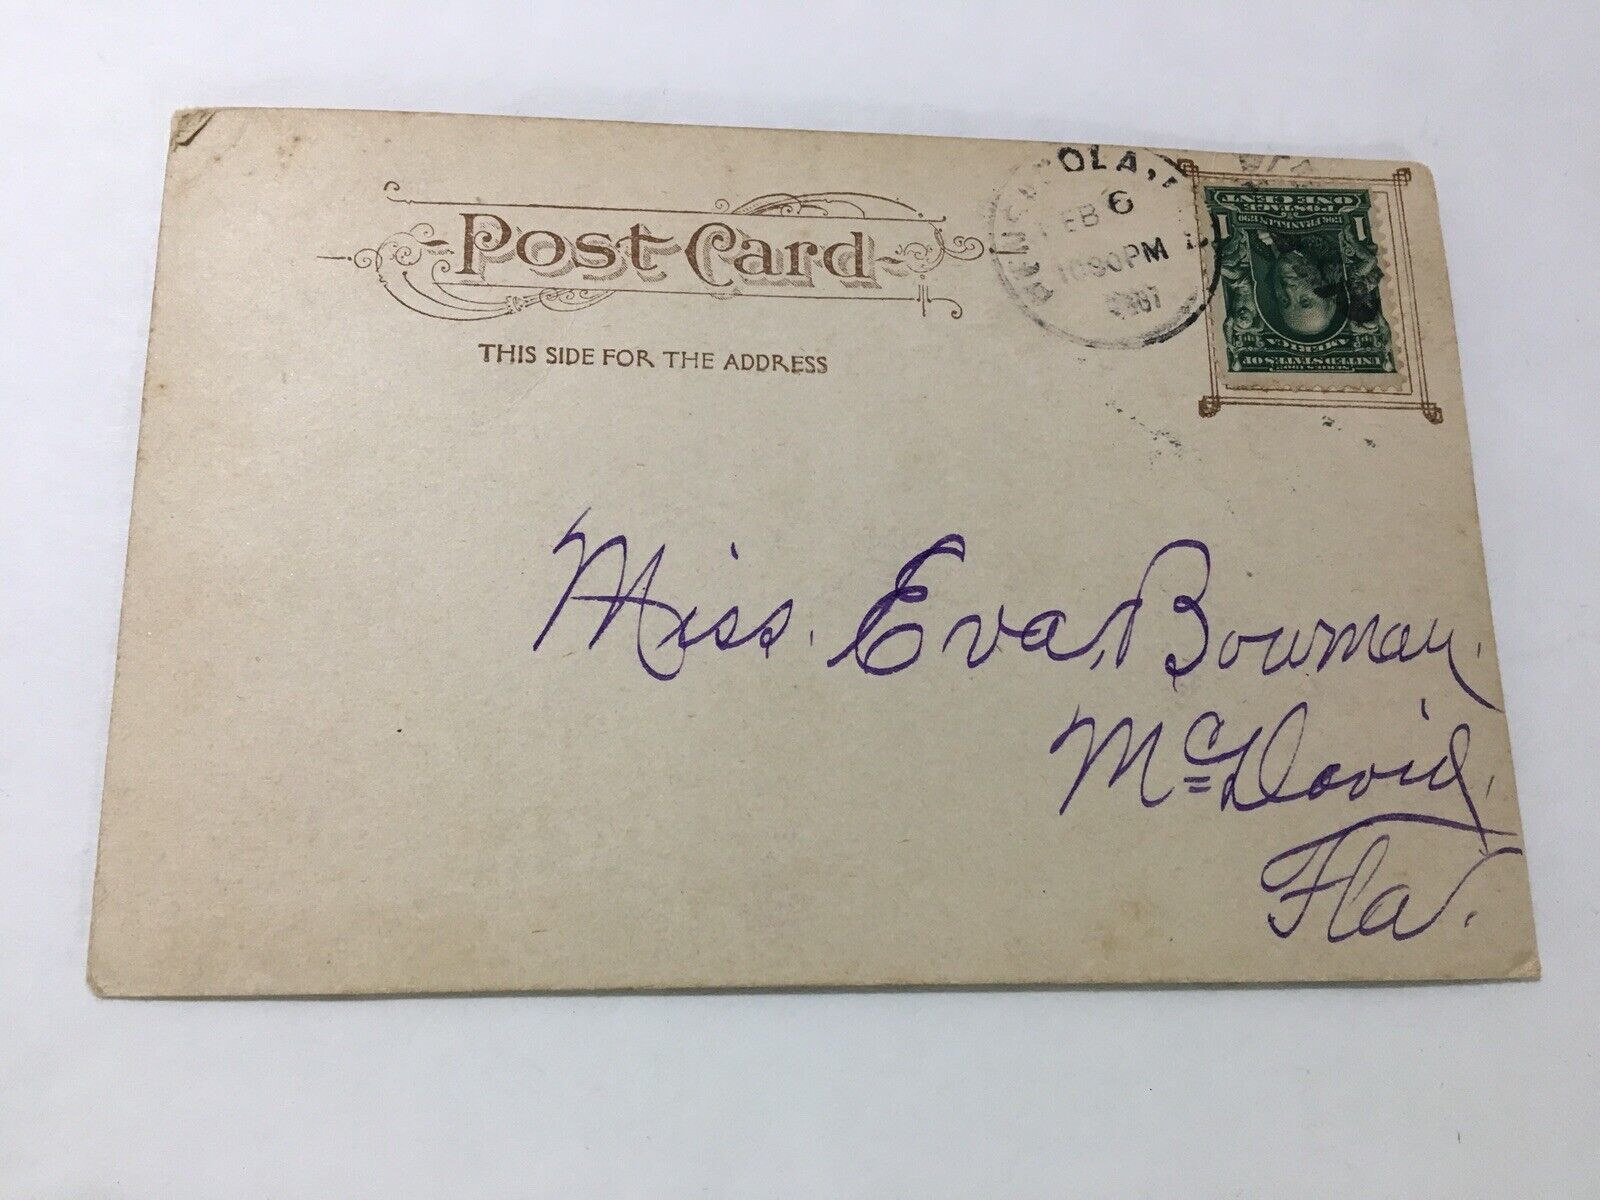 Post Card
THIS SIDE FOR THE ADDRESS
PENSACOLA,
FEB 6
1030PM
1907
ONE CENT
POSTAGE
1706 FRANKLIN 1790
1 1
SERIES 1902
UNITED STATES OF
AMERICA
Miss. Eva, Bowman.
McDavid,
Fla.